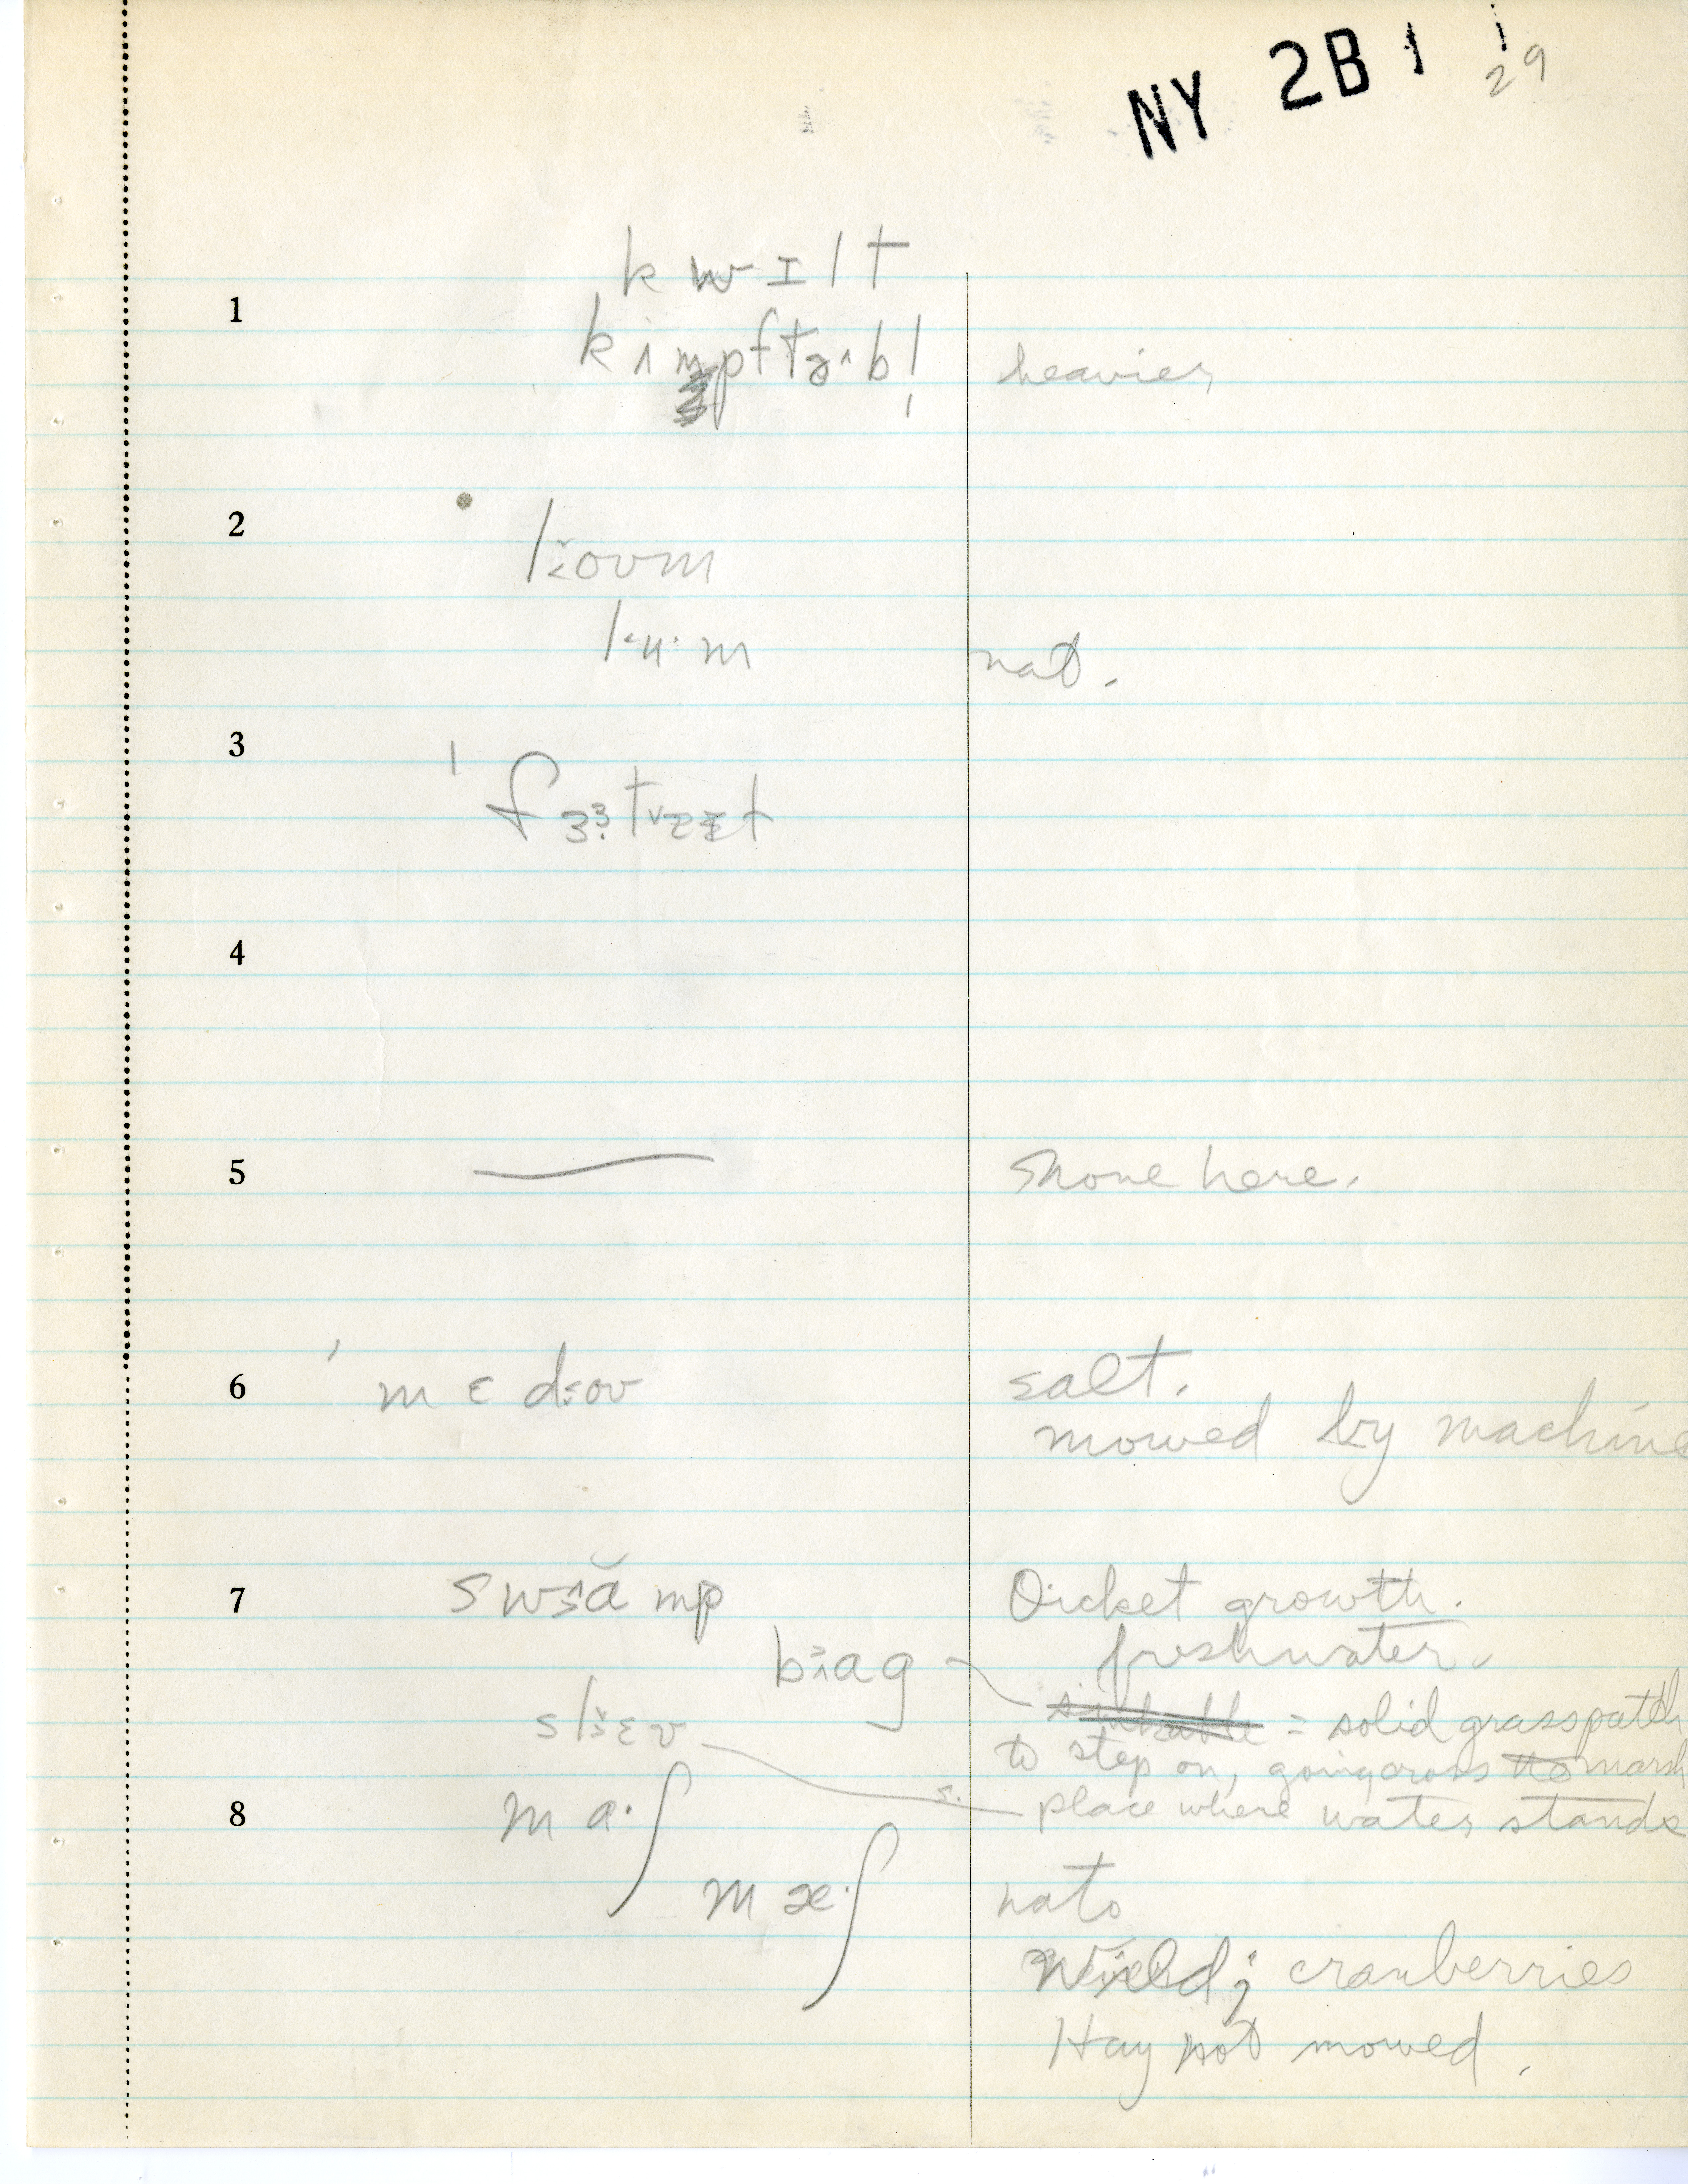 NY 2B 1
29
1
kwɪlt
kʌmpftəb!
heavier
2
loʊm
lum
nat.
3
4
5
None here.
6
mɛdoʊ
salt.
mowed by machine
7
swamp
Thicket growth.
freshwater.
bag
= solid grass path
to step on, going across the marsh
8
ma·ʃ
place where water stands
mæ·ʃ
nat.
Wild; cranberries
Hay not mowed.